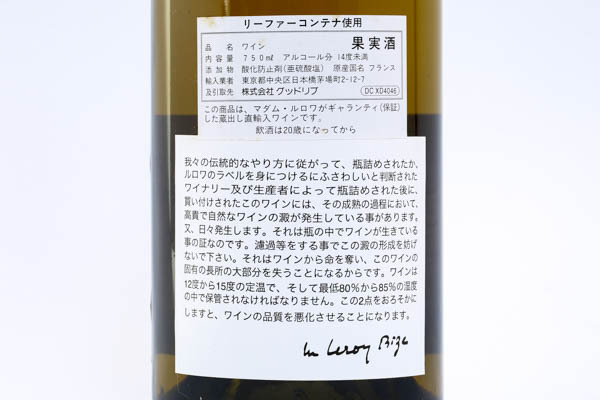 リーファーコンテナ使用
品名 ワイン 果実酒
内容量 750ml アルコール分 14度未満
添加物 酸化防止剤(亜硫酸塩) 原産国名 フランス
輸入業者 東京都中央区日本橋茅場町2-12-7
及引取先 株式会社グッドリブ DC XD4046
この商品は、マダム・ルロワがギャランティ(保証)
した蔵出し直輸入ワインです。
飲酒は20歳になってから
我々の伝統的なやり方に従がって、瓶詰めされたか、
ルロワのラベルを身につけるにふさわしいと判断された
ワイナリー及び生産者によって瓶詰めされた後に、
買い付けされたこのワインには、その成熟の過程において、
高貴で自然なワインの澱が発生している事があります。
又、日々発生します。それは瓶の中でワインが生きている
事の証なのです。濾過等をする事でこの澱の形成を妨げ
ないで下さい。それはワインから命を奪い、このワインの
固有の長所の大部分を失うことになるからです。ワインは
12度から15度の定温で、そして最低80%から85%の湿度
の中で保管されなければなりません。この2点をおろそかに
しますと、ワインの品質を悪化させることになります。
Leroy Bize